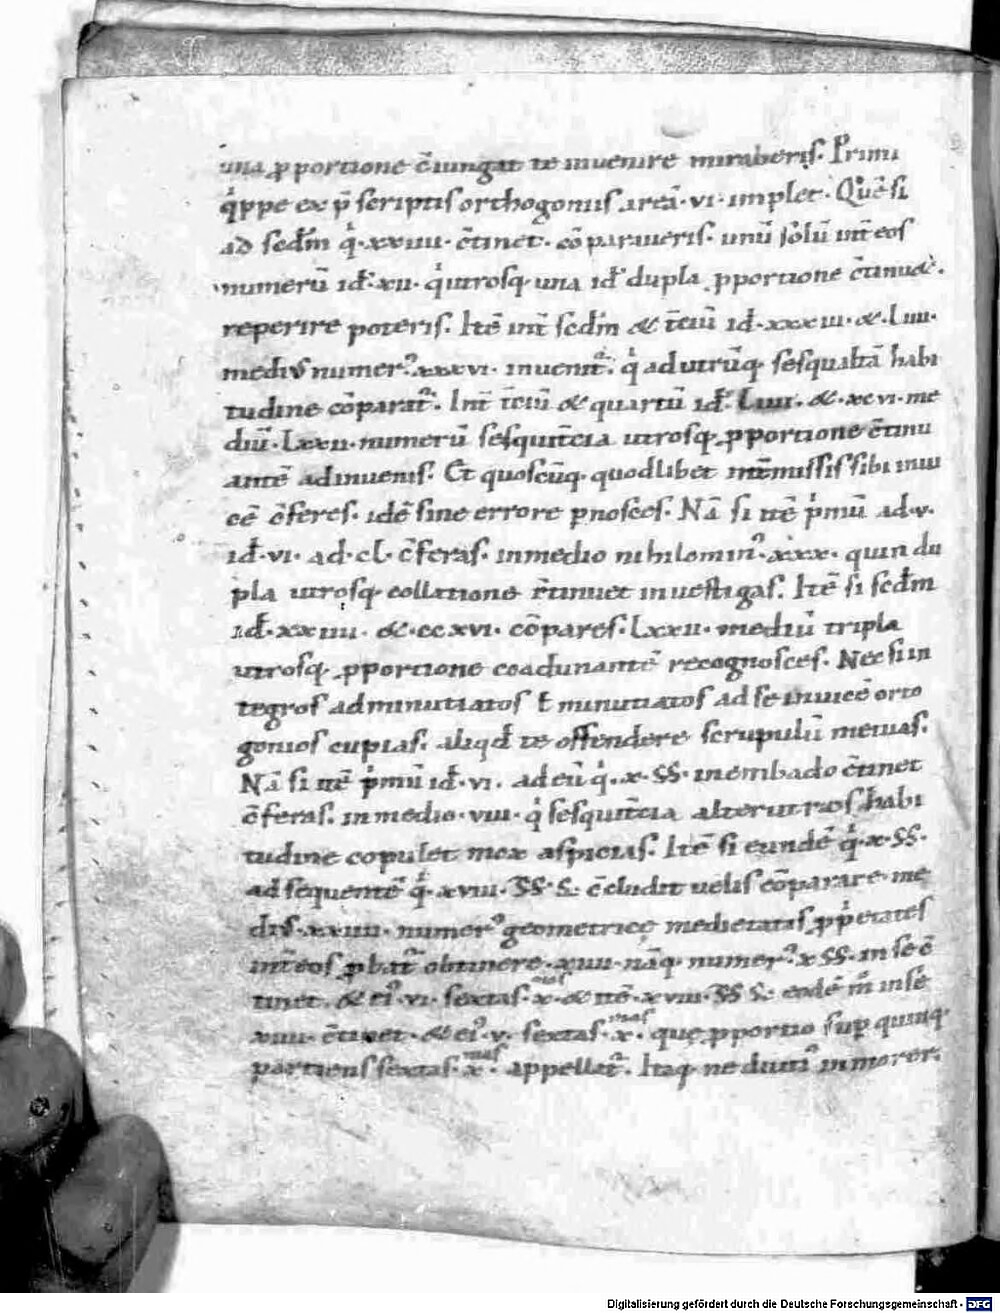 una p̱portione c̄iungat te inuenire miraberis. Primi
qͥppe ex p̄scriptis orthogonus areā ·vi· implet. Quē si
ad scd̄m qͥ ·xxiiii· c̄tinet. cōparaueris. unū solū int̄ eos
numerū id̄ ·xii· qͥ utrosq; una id̄ dupla p̱portione c̄tinuet.
reperire poteris. Itē int̄ scd̄m & t̄ciū id̄ ·xxxiiii· & ·Liiii·
medius numerꝰ ·xxxvi· inuenit᷑. qͥ ad utrūq; sesqualtā habi
tudine cōparat᷑. Int̄ t̄ciū & quartū id̄ ·Liiii· & ·xcvi· me
diū ·Lxxii· numerū sesquit̄cia utrosq; p̱portione c̄tinu
antē ad inuenis. Et quoscūq; quodlibet int̄missis sibi inui
cē c̄feres. idē sine errore p̱nosces. Nā si itē p̍mū ad ·v·
id̄ ·vi· ad ·cl· c̄feras. in medio nihilominꝰ ·xxx· quin du
pla utrosq; collatione c̄tinuet inuestigas. Itē si scd̄m
id̄ ·xxiiii· & ·ccxvi· cōpares. Lxxii· mediū tripla
utrosq; p̱portione coadunantē recognosces. Nec si in
tegros ad minutiatos ł minutiatos ad se inuicē orto
gonios cupias. aliqd̄ te offendere scrupulū metuas.
Nā si itē p̍mū id̄ ·vi· ad eū qͥ ·x· SS· in embado c̄tinet
c̄feras. in medio ·viii· qͥ sesquit̄cia alterutros habi
tudine copulet mox aspicias. Itē si eundē qͥ ·x· SS·
ad sequentē qͥ ·xviii· SS· S· c̄cludit uelis cōparare. me
dius ·xiiii· numerꝰ geometricę medietatis p̱p̍etates
int̄ eos p̱bat᷑ obtinere. xiiii· nāq; numerꝰ ·x SS· in se c̄
tinet. & eiꝰ ·vi· sextas ·x·mas & itē ·xviii· SS S· eodē m̄ in se
xiiii· c̄tinet. & eiꝰ ·v· sextas ·x·mas que p̱portio sup̱ quinq;
partiens sextas ·x·mas appellat᷑. Itaq; ne diutiꝰ inmorer.
Digitalisierung gefördert durch die Deutsche Forschungsgemeinschaft - DFG